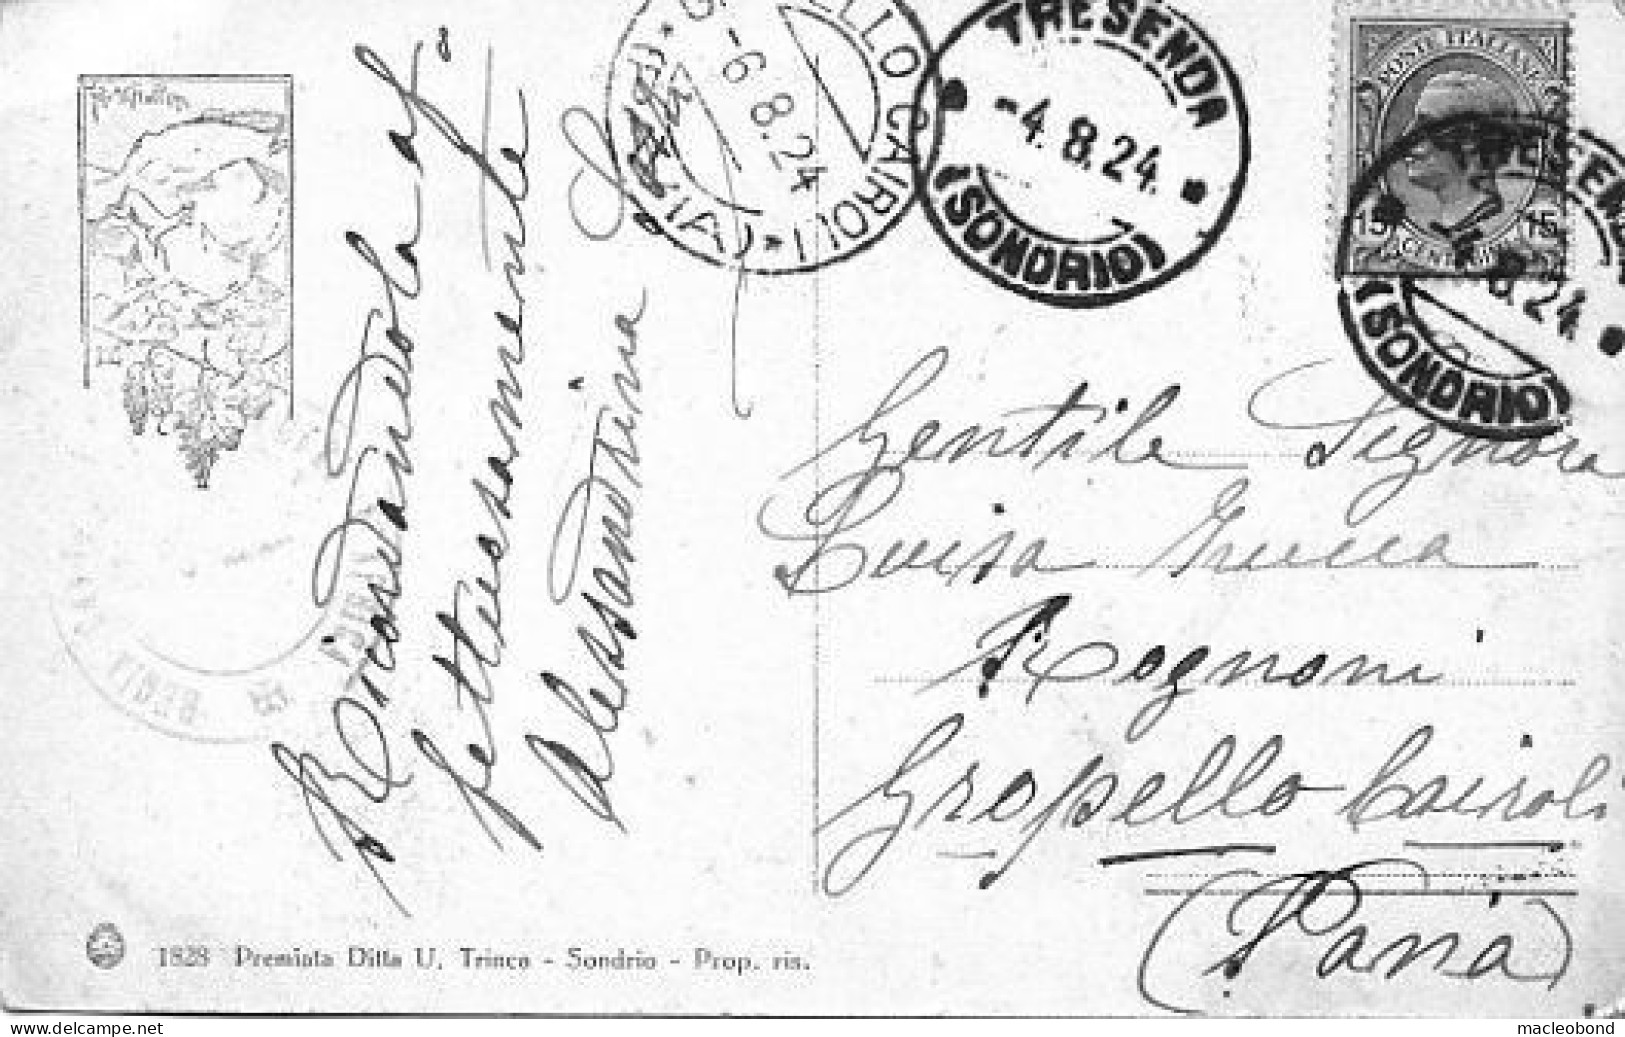 GROPELLO CAIROLI
(PAVIA)
-6.8.24
TRESENDA
-4.8.24.
(SONDRIO)
POSTE ITALIANE
15 15
CENTESIMI
TRESENDA
-4.8.24.
(SONDRIO)
Ricordandola af-
fettuosamente
Alessandrina
Gentile Signora
Luisa
Rognoni
Gropello Cairoli
(Pavia)
1828 Premiata Ditta U. Trinca - Sondrio - Prop. ris.
www.delcampe.net
macleobond